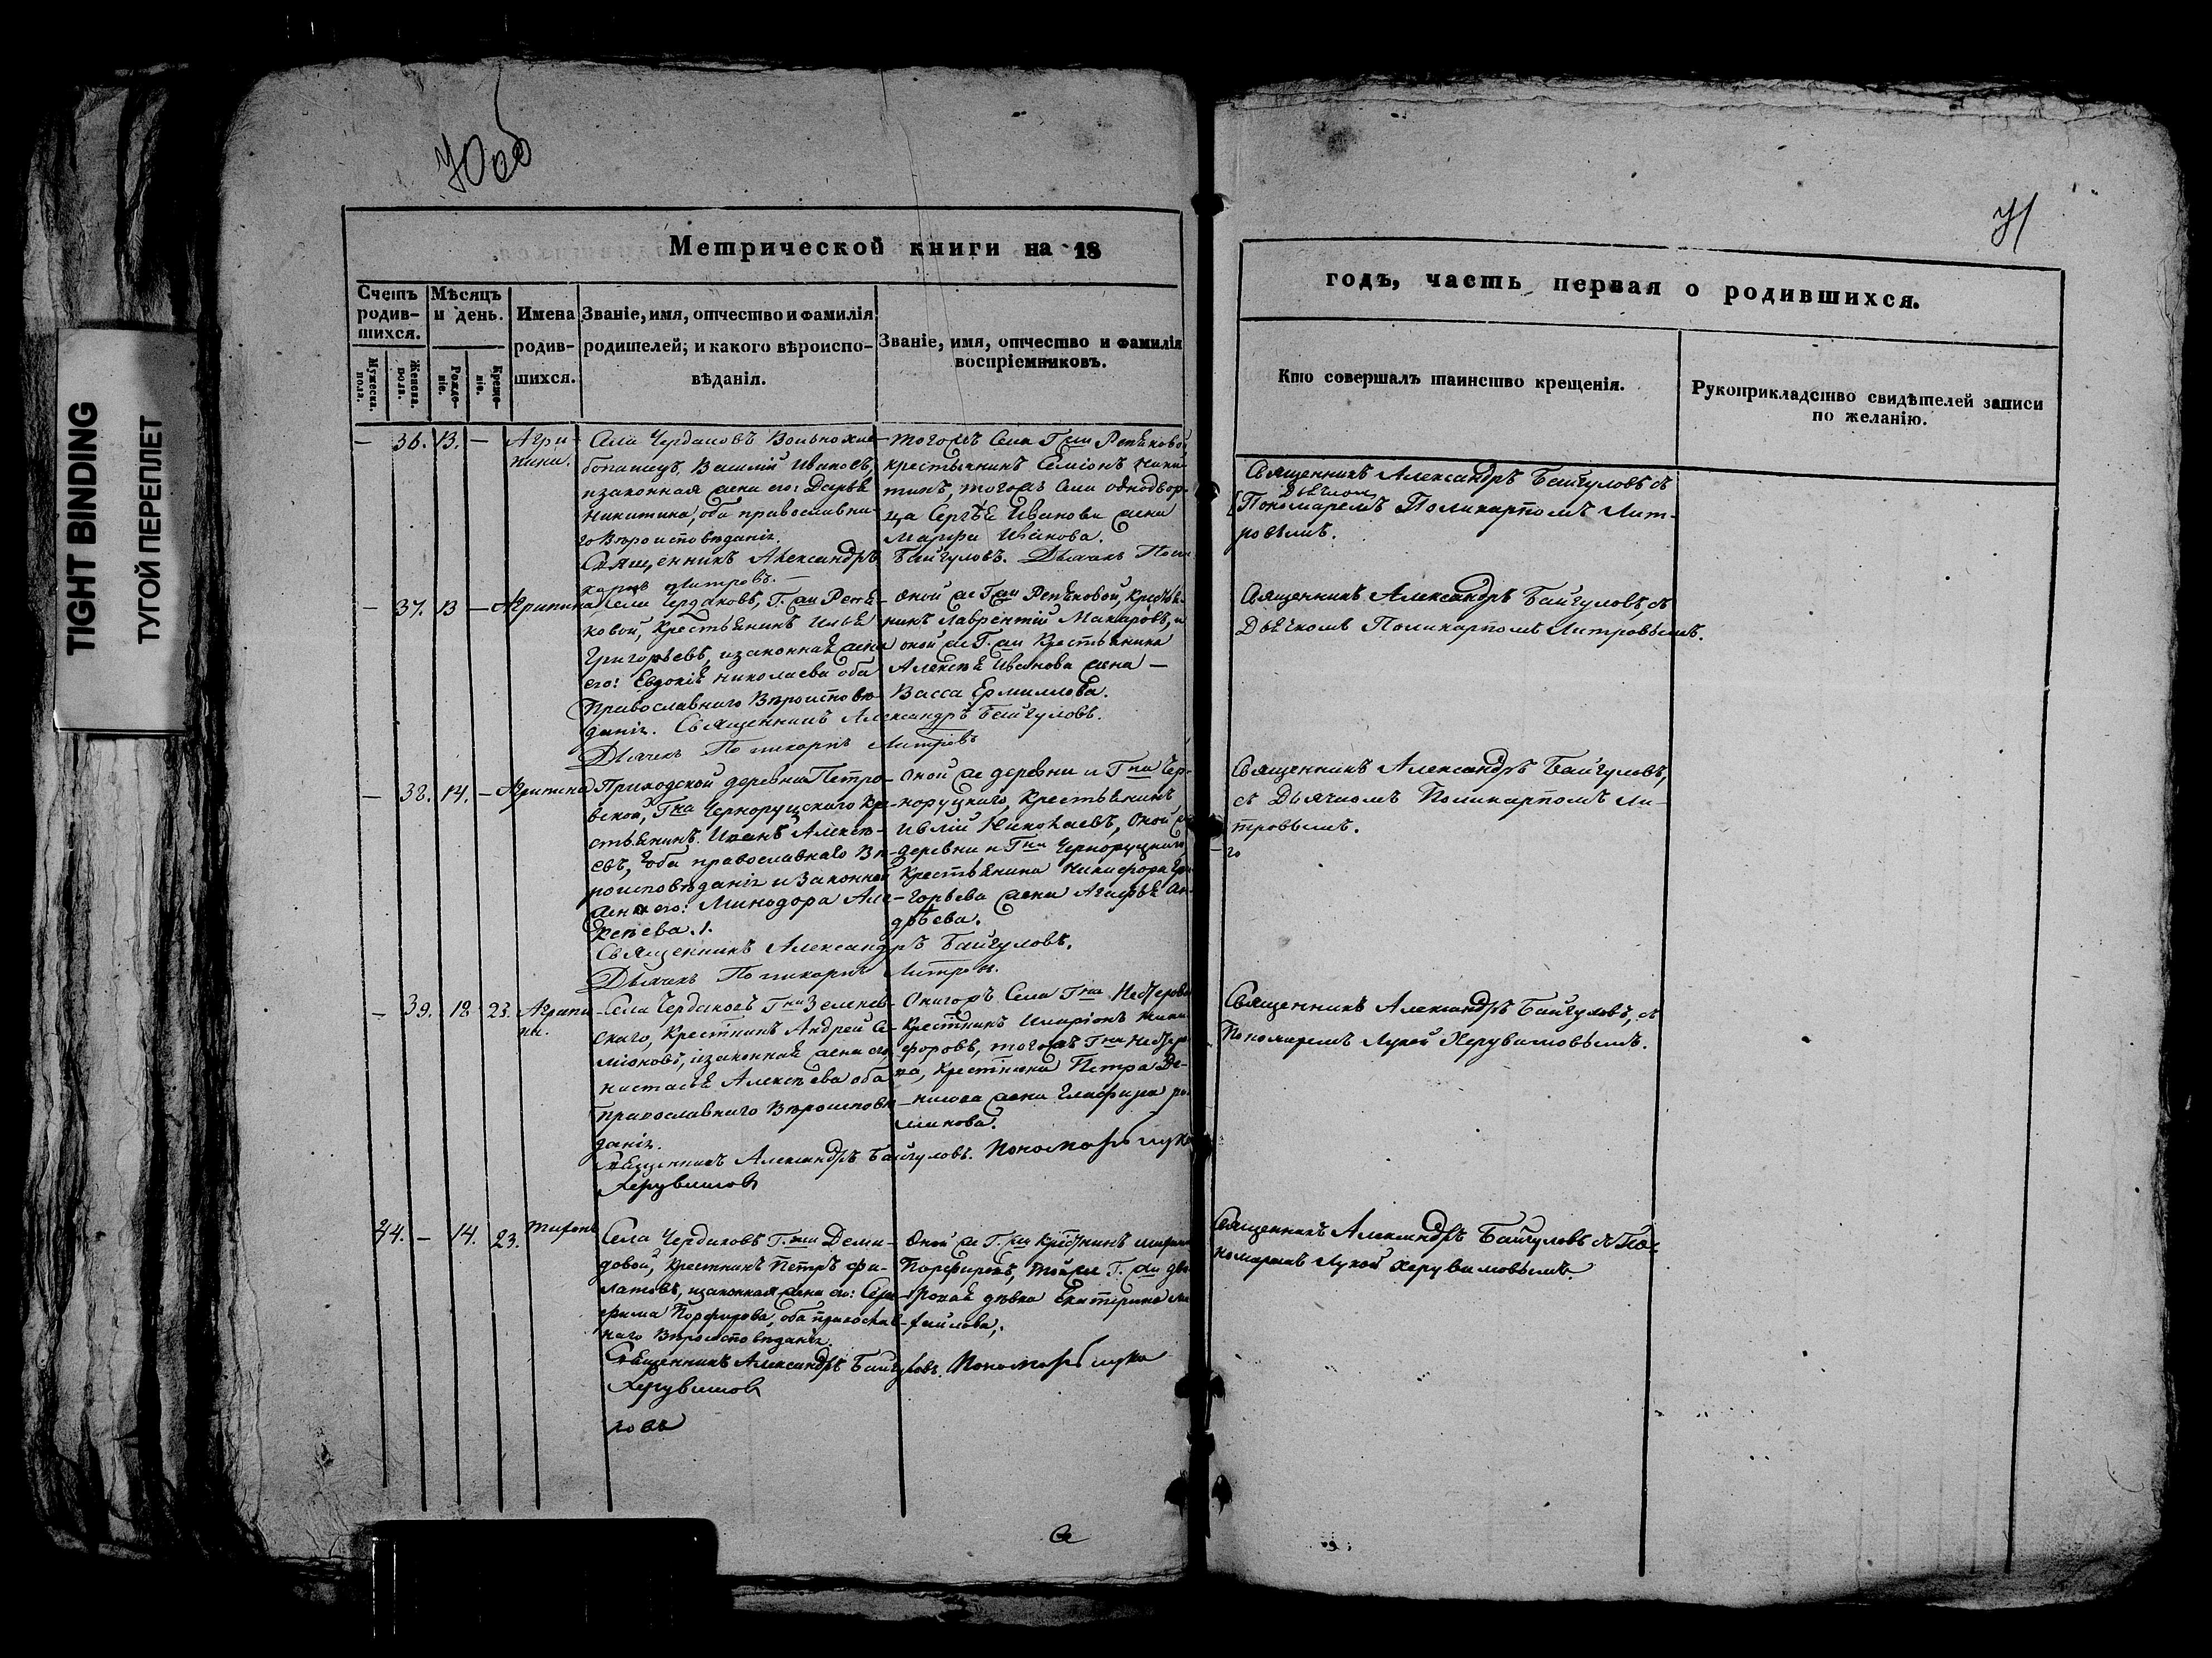 TIGHT BINDING
ТУГОЙ ПЕРЕПЛЕТ
70об
71
Метрической книги на 18
Счетъ родив-шихся.
Мѣсяцъ и день.
Имена родив-шихся.
Званіе, имя, отчество и фамилія родителей; и какого вѣроиспо-вѣданія.
Званіе, имя, отчество и фамилія воспріемниковъ.
Мужеска. пола.
Женска. пола.
Рожде-ніе.
Креще-ніе.
годъ, часть первая о родившихся.
Кто совершалъ таинство крещенія.
Рукоприкладство свидѣтелей записи по желанію.
— 36. 13. —
Агри-
пина.
Села Чердаковъ Вольнохле-
бопашецъ, Василій Ивановъ,
изаконная жена его: Дарья
Никитина, оба православна-
го Вѣроисповѣданія.
Священникъ Александръ Байгуловъ. Дьячекъ Поли-
карпъ Митровъ.
тогожъ Села Г.жи Репьковой
крестьянинъ Семіонъ Ники-
тинъ, тогожъ Села однодвор-
ца Сергѣя Иванова жена
Марфа Иванова.
Священникъ Александръ Байгуловъ съ
Дьячком
Пономаремъ Поликарпомъ Мит-
ровымъ.
— 37. 13 — Агрипина
Села Чердаковъ, Г.жи Репь-
ковой, Крестьянинъ Илья
Григорьевъ, изаконная жена
его: Евдокія Николаева оба
Православнаго Вѣроисповѣ-
данія. Священникъ Александръ Байгуловъ.
Дьячекъ Поликарпъ Митровъ
Оной же Г.жи Репьковой, Крестья-
нинъ Лаврентій Макаровъ, и
оной же Г.жи Крестьянина
Алексѣя Иванова жена —
Васса Ермилова.
Священникъ Александръ Байгуловъ, съ
Дьячкомъ Поликарпомъ Митровымъ.
— 38. 14. — Агрипина
Приходской деревни Петро-
вской, Г.на Черноруцкаго Кре-
стьянинъ Иванъ Алексѣ-
евъ, оба православнаго Вѣ-
роисповѣданія и Законная
жена его: Минодора Але-
ксѣева.
Священникъ Александръ Байгуловъ.
Дьячекъ Поликарпъ Митровъ.
Оной же деревни и Г.на Чер-
норуцкаго, Крестьянинъ
Николаевъ, Оной же
деревни и Г.на Черноруцкаго
Крестьянина Никифора Гри-
горьева жена Агафья Ан-
дрѣева.
Священникъ Александръ Байгуловъ,
съ Дьячкомъ Поликарпомъ Ми-
тровымъ.
— 39. 18 23. Агрипи-
на.
Села Чердаковъ Г.на Зеленев-
скаго, Крестнинъ Андрей Се-
міоновъ, изаконная жена его
Настасья Алексѣева оба
православнаго Вѣроисповѣ-
данія.
Священникъ Александръ Байгуловъ. Пономарь Лука
Херувимовъ
Крестнинъ Иларіонъ Ники-
форовъ, тогожъ Г.на
Крестнина Петра Де-
нисова жена Глафира
Священникъ Александръ Байгуловъ, съ
Пономаремъ Лукой Херувимовымъ.
44. — 14. 23. Тихонъ
Села Чердаковъ Г.жи Деми-
довой, Крестнинъ Петръ Фи-
латовъ, изаконная жена его: Сера-
фима Порфирова, оба православ-
наго Вѣроисповѣданія.
Священникъ Александръ Байгуловъ. Пономарь Лука
Херувимовъ
ловъ
Оной же Г.жи Крестнинъ
Порфировъ, тойже Г.жи дво-
ровая дѣвка Екатерина Ми-
хайлова.
Священникъ Александръ Байгуловъ съ По-
номаремъ Лукой Херувимовымъ.